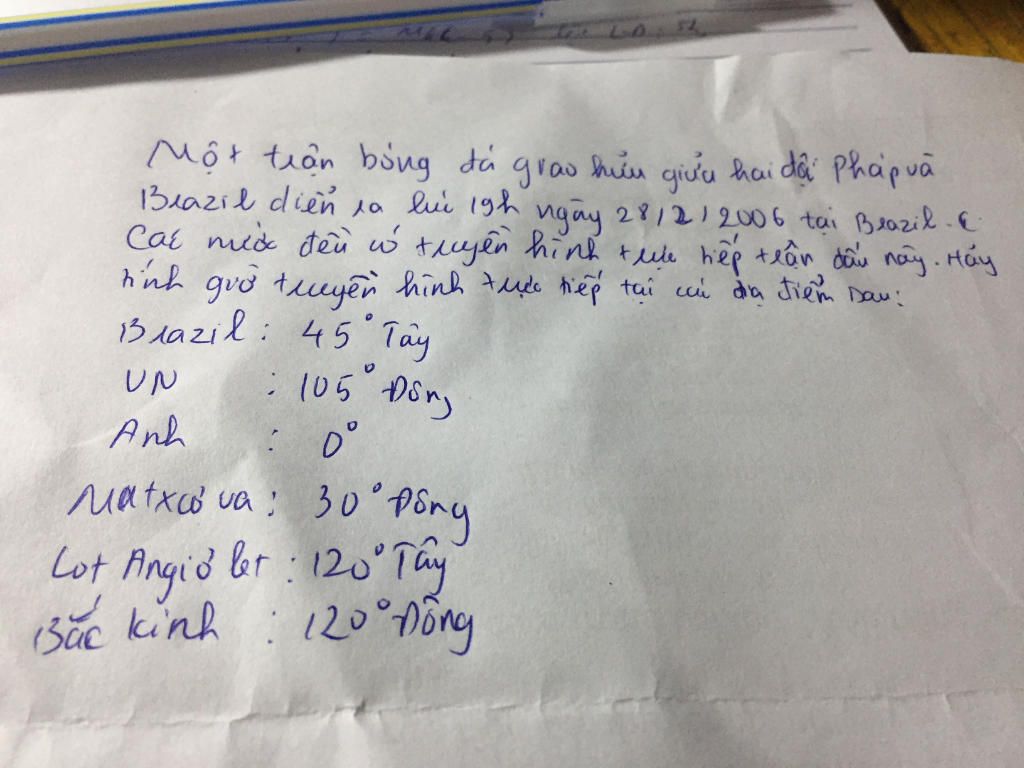 Một trận bóng đá giao hữu giữa hai đội Pháp và
Brazil diễn ra lúc 19h ngày 28/2/2006 tại Brazil.
Các nước đều có truyền hình trực tiếp trận đấu này. Hãy
tính giờ truyền hình trực tiếp tại các địa điểm sau:
Brazil: 45° Tây
VN : 105° Đông
Anh : 0°
Matxcơva: 30° Đông
Lot Angiơ let: 120° Tây
Bắc kinh : 120° Đông